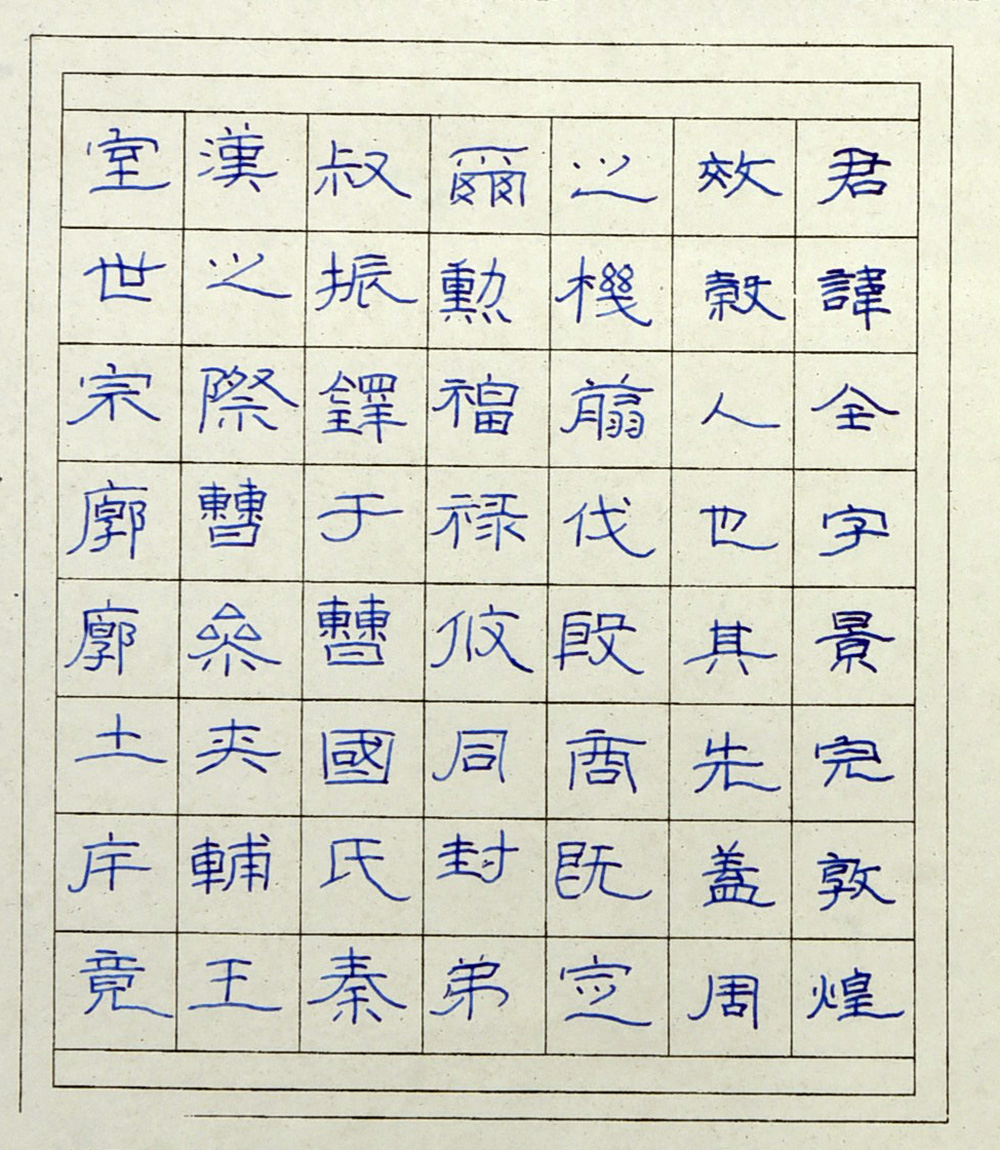 君諱全字景完敦煌
效穀人也其先蓋周
之機翦伐殷商既定
爾勲福禄攸同封弟
叔振鐸于曹國氏秦
漢之際曹參夾輔王
室世宗廓廓土斥竟